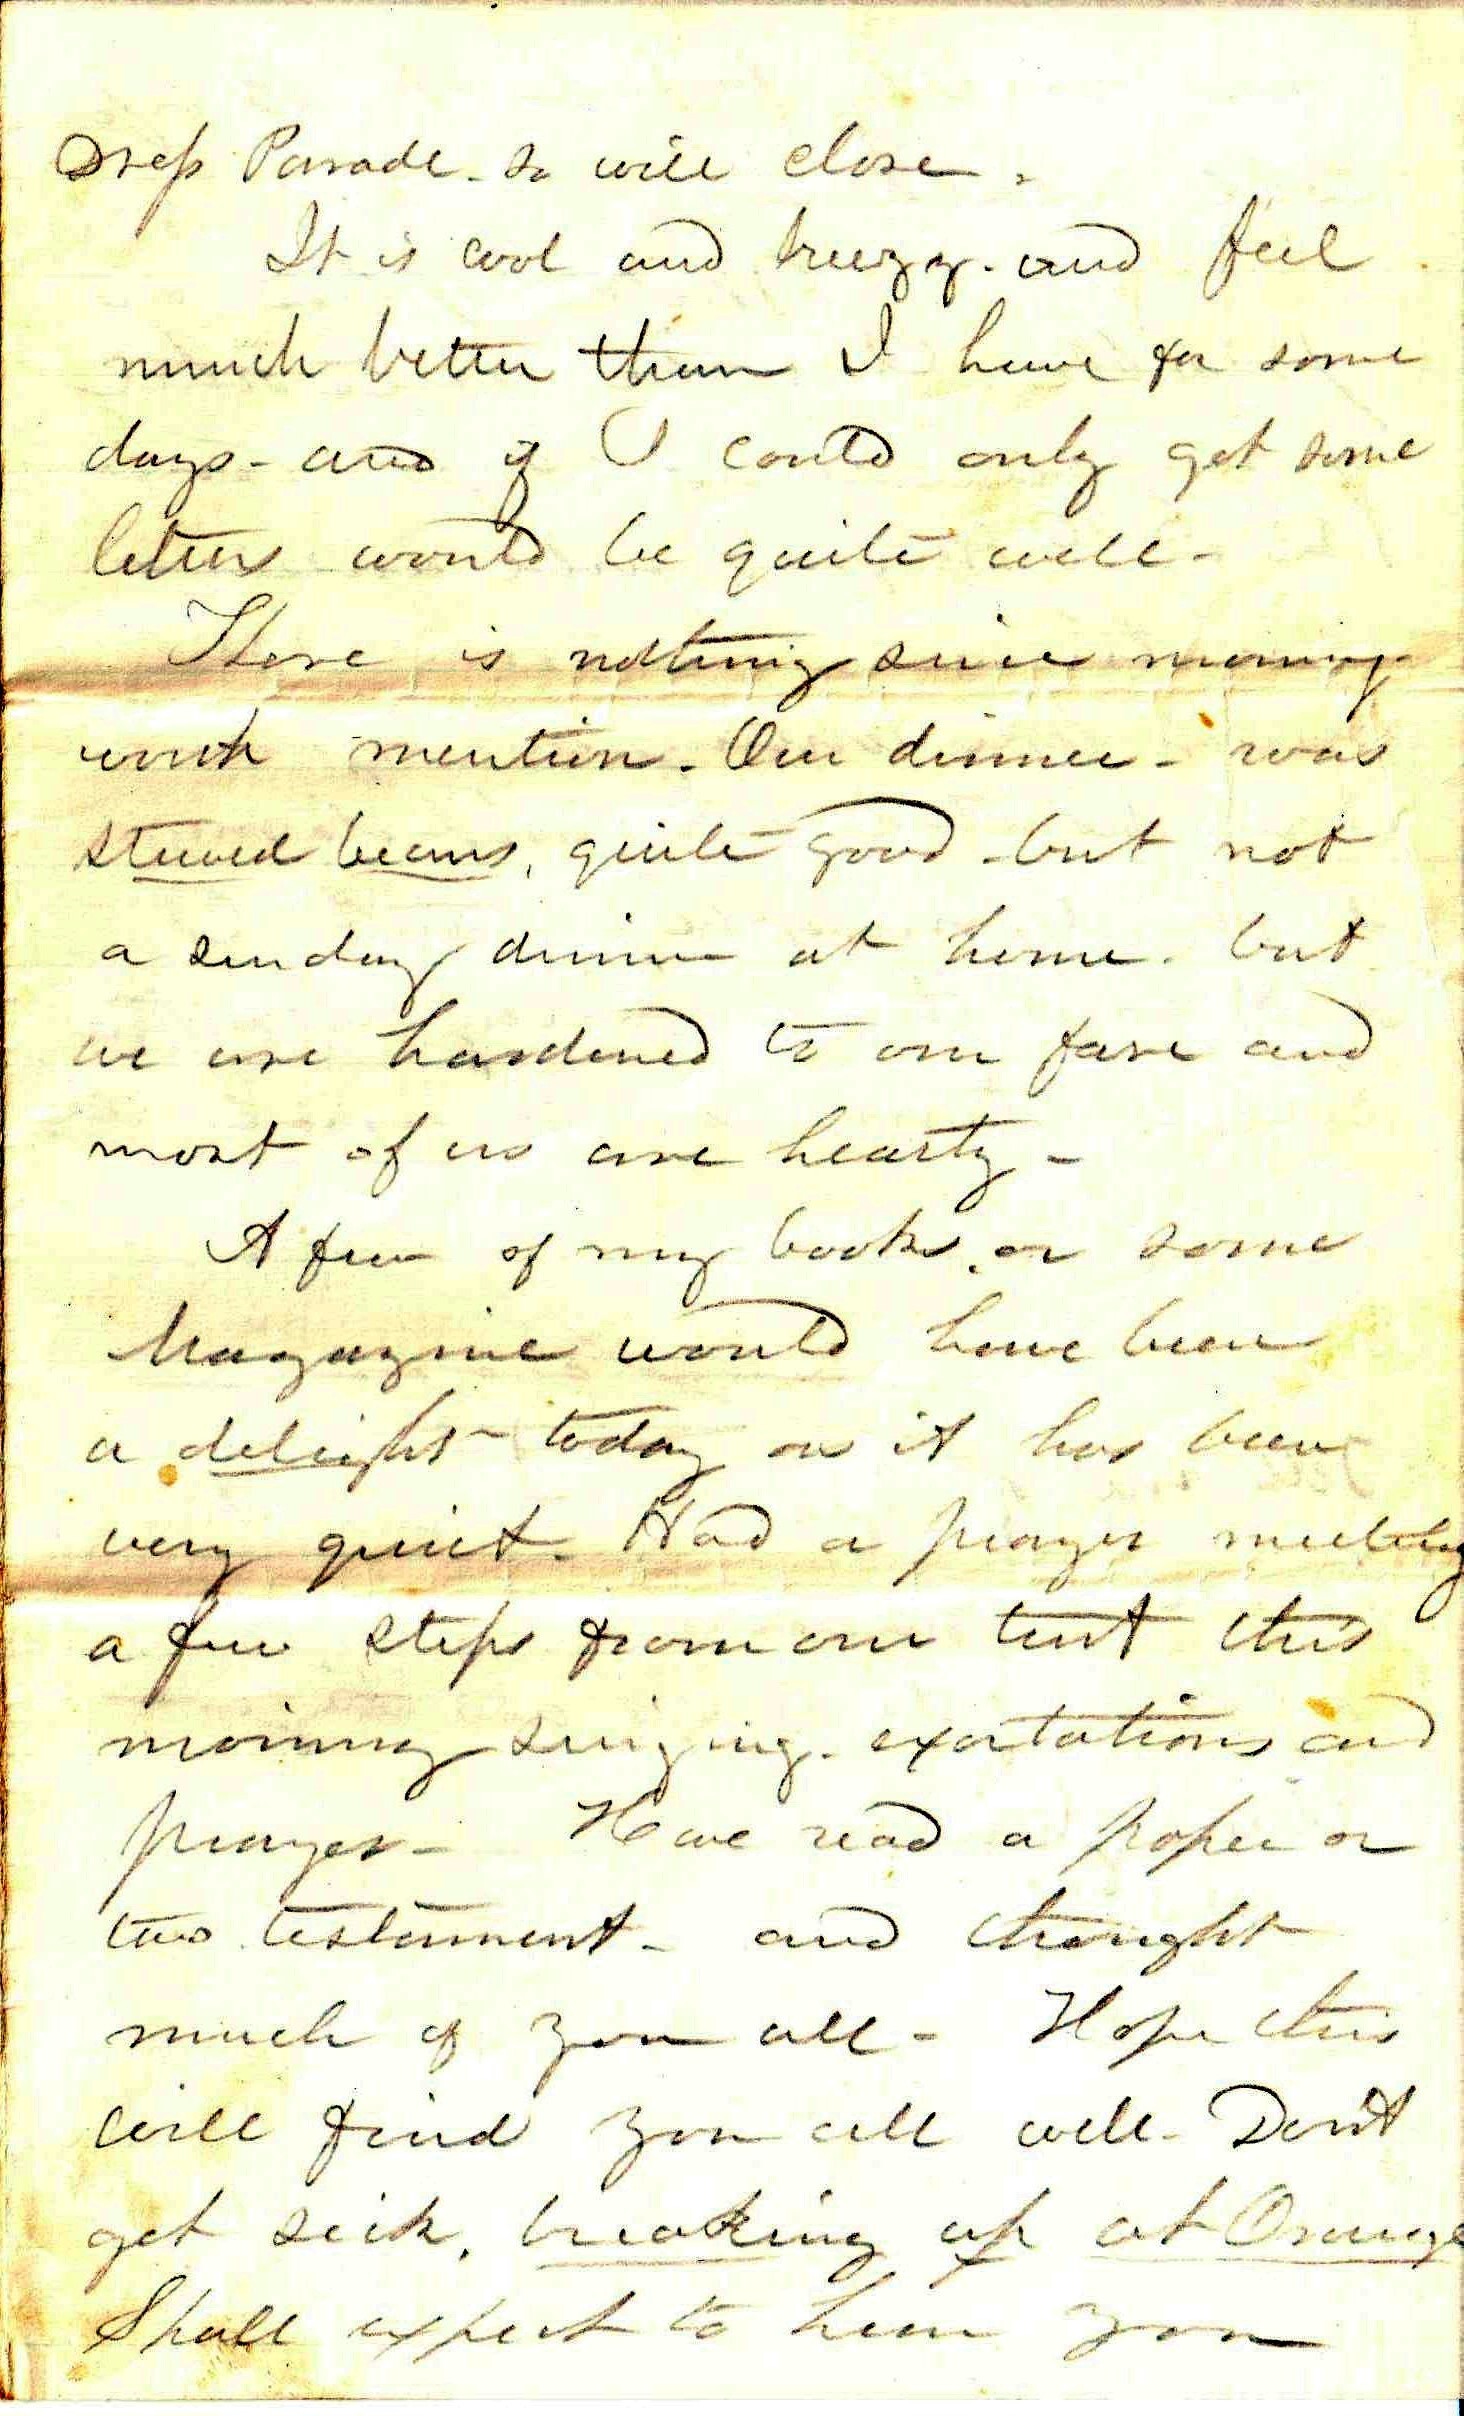 Dress Parade - so will close.
It is cool and breezy - and feel
much better than I have for some
days - and if I could only get some
letters would be quite well -
There is nothing since morning
worth mention - Our dinner - was
stewed beans, quite good - but not
a sunday dinner at home - but
we are hardened to our fare and
most of us are hearty -
A few of my books, or some
Magazine would have been
a delight today as it has been
very quiet - Had a prayer meeting
a few steps from our tent this
morning singing - exortations and
prayer - Have read a paper or
two testament - and thought
much of you all - Hope this
will find you all well - Don't
get sick, breaking up at Orange
Shall expect to hear you